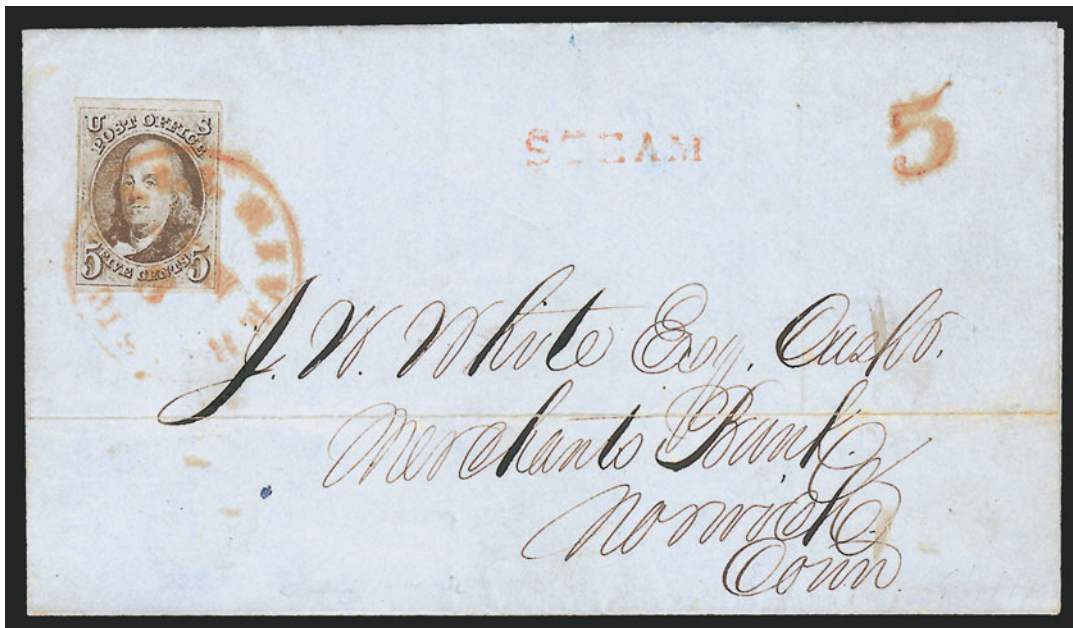 U S
POST OFFICE
5 FIVE CENTS 5
STEAM
5
J. W. White Esq. Cashr.
Merchants Bank.
Norwich
Conn.